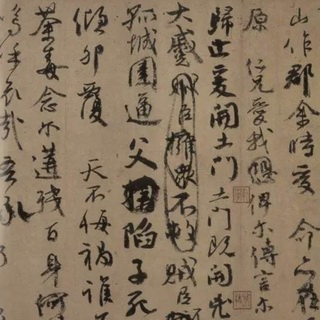 山作郡余時受命亦在
原仁兄愛我俾爾傳言爾
歸止爰開土門土門既開兇
大蹙賊臣擁眾不救賊臣
孤城圍逼父陷子死
傾卵覆天不悔禍誰
荼毒念爾遘殘百身何
嗚乎哀哉吾承